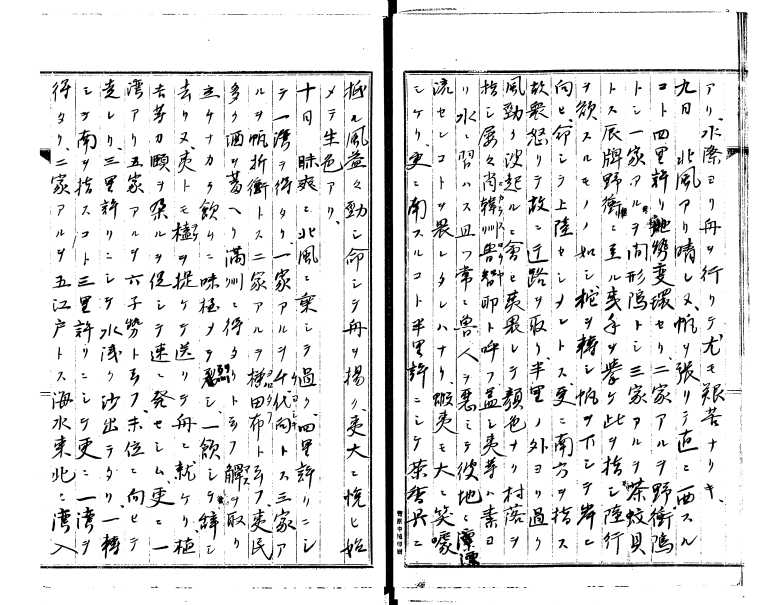 アリ、水際ヨリ舟ヲ行リテ尤モ艱苦ナリキ、
九日 北風アリ晴レヌ、帆ヲ張リテ直ニ西スル
コト四里許リ地勢変環セリ、二家アルヲ野衝
トシ一家アルヲ問形 トシ三家アルヲ茶蚊貝
トス辰牌野衝ニ至ル夷手ヲ挙ケ此ヲ指シ陸行
ヲ欲スルモノヽ如シ柁ヲ轉シ帆ヲ下シテ岸ニ
向ヒ命シテ上陸セシメントス更ニ南方ヲ指ス
故衆怒リテ故ニ迂路ヲ取リ半里ノ外ヨリ過リ
風勁ク波起ルニ會ヒ夷畏レテ顔色ナリ村落ヲ
指シ屡々肖韓訓 智卯ト呼フ蓋シ夷等ハ素ヨ
リ水ニ習ハス且ツ常ニ魯人ヲ悪ミテ彼地ニ漂
流セシコトヲ畏レタレハナリ、蝦夷モ大ニ笑噱
シケリ、更ニ南スルコト半里許ニシテ
極ル風益々勁シ命シテ舟ヲ揚リ、夷大ニ悦ヒ始
メテ生色アリ、
十日 昧爽ニ北風ニ乗シテ過リ、四里許リニシ
テ一湾ヲ得タリ、一家アルヲ千代向トス三家ア
ルヲ帆折衝トス二家アルヲ 田布ト云フ、夷民
多ク酒ヲ蓄ヘリ満洲ニ得タリト云フ解ヲ取リ
立ケナカラ飲ムニ味極メテ シ一領シテ辞シ
去リ又、夷トモ樹ヲ提ケテ送リテ舟ニ就ケリ植
吉等力頤ヲ朶ルヲ促シテ速ニ発セシム更ニ一
湾アリ五家アルヲ六子勢ト云フホ位ニ向ヒテ
走レリ、三里許リニシテ水浅ク沙出テタリ、一轉
シテ南ヲ指スコト三里許リニシテ更ニ一湾ヲ
得タリ、二家アルヲ五江戸トス海水東北ニ湾入